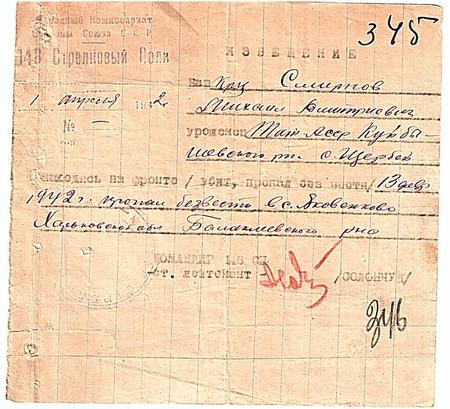 345
Народный Комиссариат
Обороны Союза С С Р
148 Стрелковый Полк
ИЗВЕЩЕНИЕ
1 апреля 1942 г.
№ —
Ваш Смирнов
Михаил Дмитриевич
уроженец Тат АССР Куйбы
шевского рн. с. Щербен
Находясь на фронте / убит, пропал без вести / 13 февр
1942 г. пропал безвести в с. Яковенково
Харьковской обл Балаклиевского р-на
КОМАНДИР 148 СП
ст. лейтенант /СОЛОНЧУК/
346